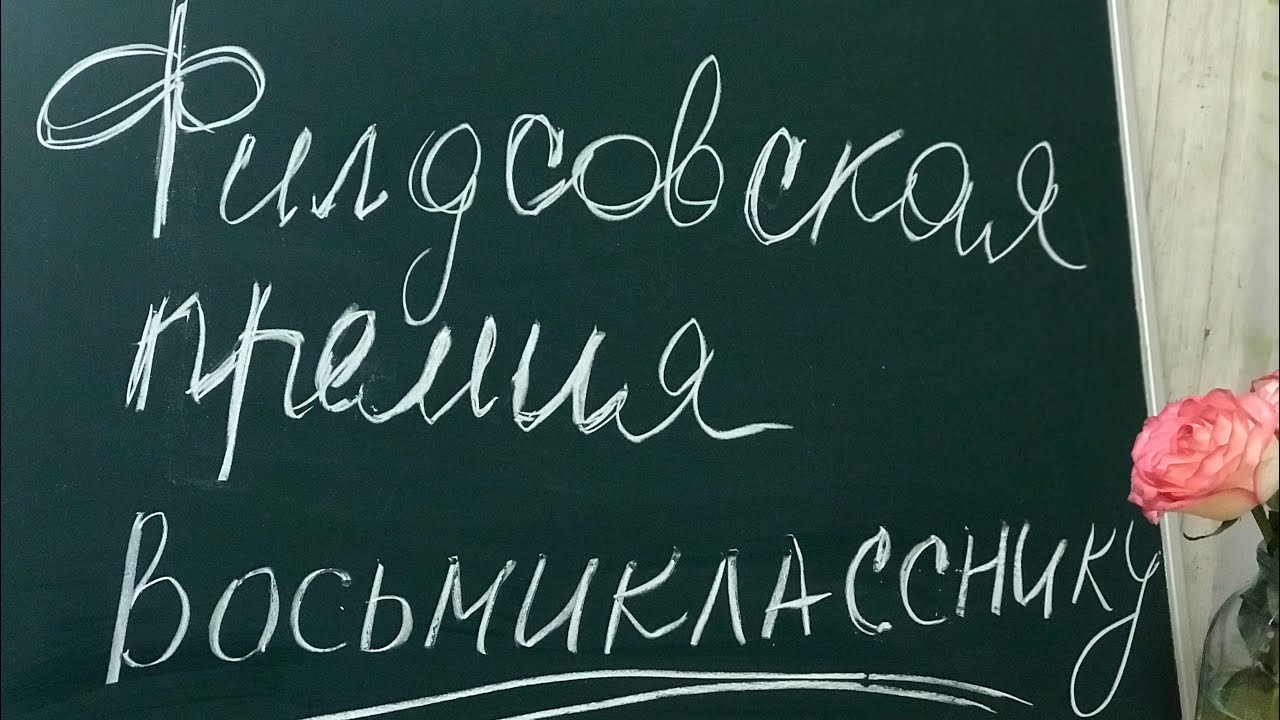 Филдсовская
премия
Восьмикласснику